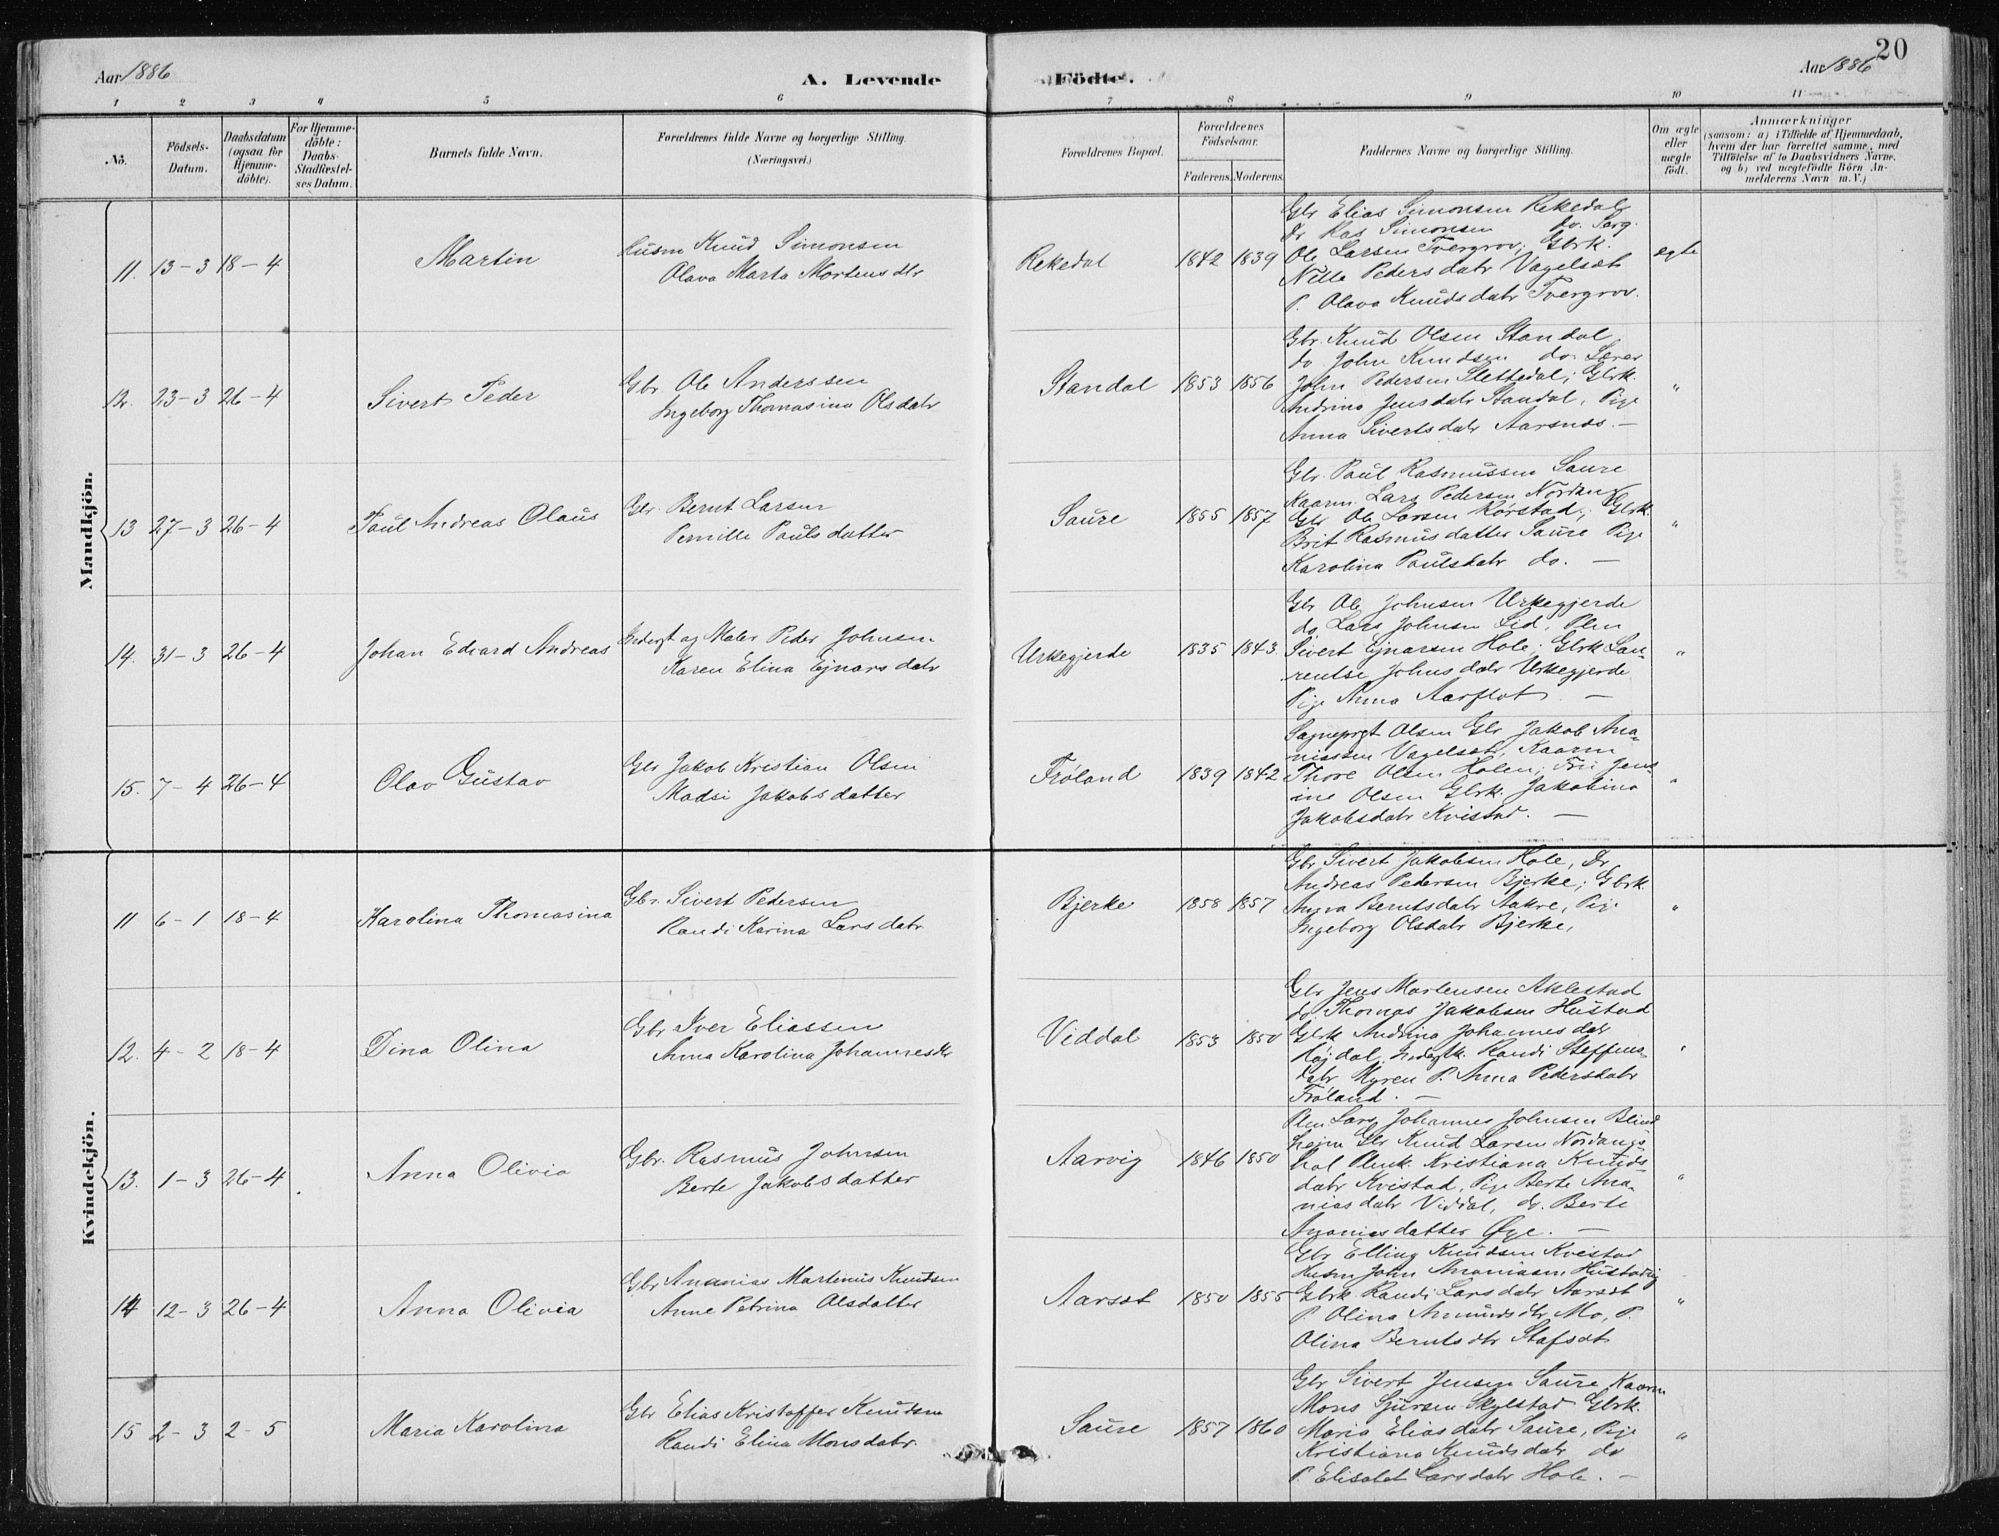 Aar 1886
A. Levende
Födte.
Aar 1886
20
1 2 3 4 5 6 7 8 9 10 11
No.
Födsels-
Datum.
Daabsdatum
(ogsaa for
Hjemme-
döbte).
For Hjemme-
döbte:
Daabs-
Stadfæstel-
ses Datum.
Barnets fulde Navn.
Forældrenes fulde Navne og borgerlige Stilling.
(Næringsvei.)
Forældrenes Bopæl.
Forældrenes
Födselsaar.
Faderens. Moderens.
Faddernes Navne og borgerlige Stilling.
Om ægte
eller
uægte
födt.
Anmærkninger
(saasom: a) i Tilfælde af Hjemmedaab,
hvem der har forrettet samme, med
Tilföielse af to Daabsvidners Navne,
og b) ved uægtefödte Börn An-
melderens Navn m. V.)
Mandkjön.
11. 13-3 18-4 Martin
Husm Knud Simonsen
Olava Marta Mortensdtr
Rekedal 1842 1839
Gbr Elias Simonsen Rekedal
dr Ras Simonsen do. Sørg.
Ole Larsen Tvergrov; Gbrk.
Nille Pedersdatr Vagelsæt
P. Olava Knudsdatr Tvergrov.
egte
12. 23-3 26-4 Sivert Peder
Gbr Ole Anderssen
Ingeborg Thomasina Olsdatr
Standal 1853 1856
Gbr. Knud Olsen Standal
do John Knudsen do. Lærer
John Pedersen Slettedal; Gbrk.
Andrina Jensdatr Standal, Pige
Anna Sivertsdatr Aarsnes. —
"
13 27-3 26-4 Paul Andreas Olaus
Gbr. Bernt Larsen
Pernille Paulsdatter
Saure 1855 1857
Gbr. Paul Rasmussen Saure
Kaarm. Lars Pedersen Nordang
Gbr Ole Larsen Korstad; Gbrk.
Brit Rasmusdatter Saure Pige
Karolina Paulsdatr do. —
"
14. 31-3 26-4 Johan Edvard Andreas
Inderst og Maler Peder Johnsen
Karen Elina Ejnarsdatr
Urkegjerde 1835 1843.
Gbr Ole Johnsen Urkegjerde
do Lars Johnsen Lid; Plm
Sivert Ejnarsen Hole; Gbrk Lau-
rentse Johnsdatr Urkegjerde
Pige Anna Aarflot —
"
15. 7-4 26-4 Olav Gustav
Gbr Jakob Kristian Olsen
Madsi Jakobsdatter
Frøland 1839 1842
Sogneprest Olsen Gbr Jakob Ana-
niassen Vagelsæt, Kaarm
Thore Olsen Holen; Fru Jens-
ine Olsen Gbrk. Jakobina
Jakobsdatr Kvistad. —
"
Kvindekjön.
11 6-1 18-4 Karolina Thomasina
Gbr. Sivert Pedersen
Randi Karina Larsdatr
Bjerke 1858 1857
Gbr Sivert Jakobsen Hole, dr
Andreas Pedersen Bjerke; Gbrk.
Anna Berntsdatr Aakre, Pige
Ingeborg Olsdatr Bjerke,
"
12. 4-2 18-4 Dina Olina
Gbr Iver Eliassen
Anna Karolina Johannesdr
Viddal 1853 1850
Gbr Jens Martensen Aklestad
do. Thomas Jakobsen Hustad
Gbrk Andrina Johannesdatr
Højdal, Inderstk. Randi Steffens-
datr Myren P. Anna Pedersdatr
Frøland. —
"
13. 1-3 26-4 Anna Olivia
Gbr. Rasmus Johnsen
Berte Jakobsdatter
Aarvig 1846 1850
Plm Lars Johannes Johnsen Blind
heim Gbr Knud Larsen Nordangs-
dal Plmk. Kristiana Knuds-
datr Kvistad, Pige Berte Ana-
niasdatr Viddal, dr. Berte
Ananiasdatter Øye. —
"
14 12-3 26-4 Anna Olivia
Gbr Ananias Martinus Knudsen
Anne Petrina Olsdatter
Aarsæt 1850 1855
Gbr Elling Knudsen Kvistad
Husm John Ananiasen Hustadvig
Gbrk Randi Larsdatr Aarsæt
P. Olina Amundsdtr Mo, P.
Olina Berntsdtr Stafsæt
"
15 2-3 2-5 Maria Karolina
Gbr Elias Kristoffer Knudsen
Randi Elina Monsdatr.
Saure 1857 1860
Gbr Sivert Jensen Saure, Kaarm
Mons Gjursen Skylstad Gbrk.
Maria Eliasdatr Saure, Pige
Kristiana Knudsdatr do
P. Elisabet Larsdatr Hole. —
"